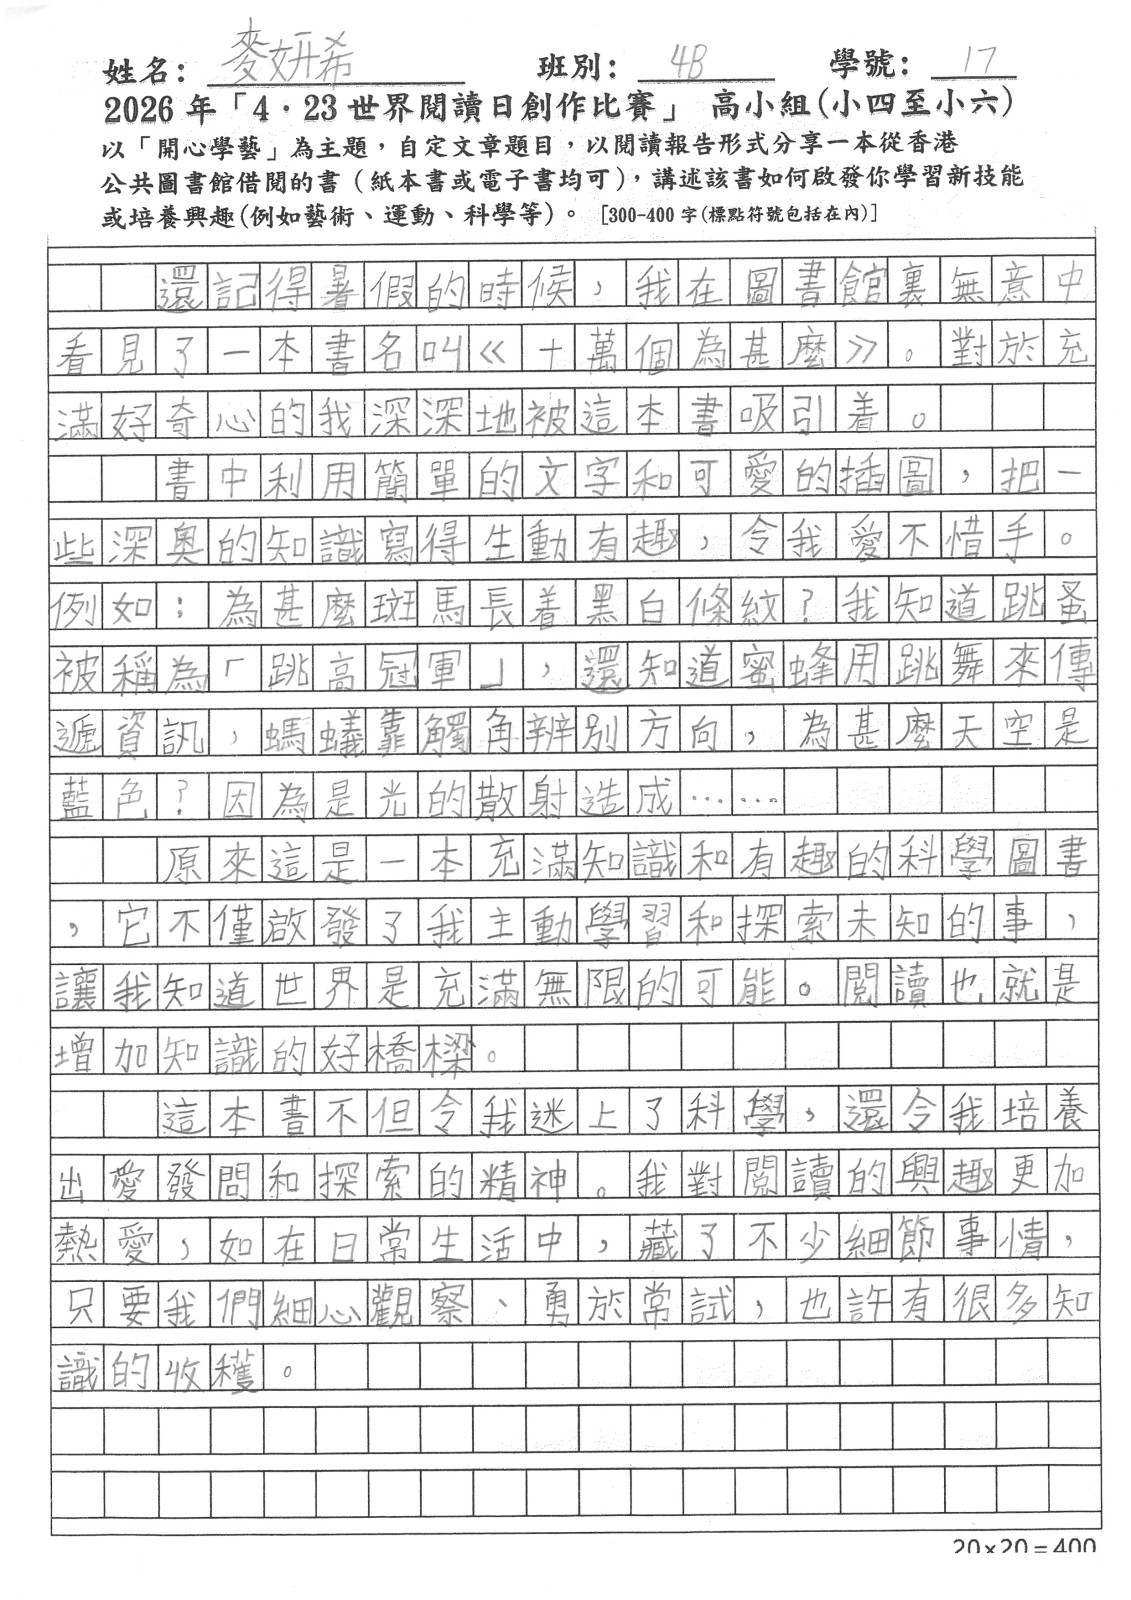 姓名：麥妍希 班別：4B 學號：17
2026 年「4．23 世界閱讀日創作比賽」 高小組(小四至小六)
以「開心學藝」為主題，自定文章題目，以閱讀報告形式分享一本從香港
公共圖書館借閱的書（紙本書或電子書均可)，講述該書如何啟發你學習新技能
或培養興趣(例如藝術、運動、科學等)。 [300-400 字(標點符號包括在內)]
還記得暑假的時候，我在圖書館裏無意中
看見了一本書名叫《十萬個為甚麼》。對於充
滿好奇心的我深深地被這本書吸引着。
書中利用簡單的文字和可愛的插圖，把一
些深奧的知識寫得生動有趣，令我愛不惜手。
例如：為甚麼斑馬長着黑白條紋？我知道跳蚤
被稱為「跳高冠軍」，還知道蜜蜂用跳舞來傳
遞資訊，螞蟻靠觸角辨別方向，為甚麼天空是
藍色？因為是光的散射造成……
原來這是一本充滿知識和有趣的科學圖書
，它不僅啟發了我主動學習和探索未知的事，
讓我知道世界是充滿無限的可能。閱讀也就是
增加知識的好橋樑。
這本書不但令我迷上了科學，還令我培養
出愛發問和探索的精神。我對閱讀的興趣更加
熱愛，如在日常生活中，藏了不少細節事情，
只要我們細心觀察、勇於嘗試，也許有很多知
識的收穫。
20×20=400